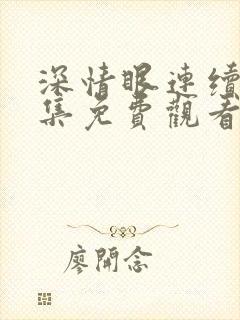 深情眼連續
集免費觀看
廖開念